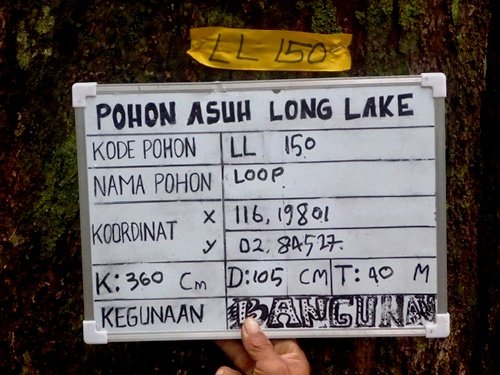 LL 150
POHON ASUH LONG LAKE
KODE POHON LL 150
NAMA POHON LOOP
KOORDINAT X 116,19801
y 02,84527
K: 360 Cm D: 105 CM T: 40 M
KEGUNAAN BANGUNAN